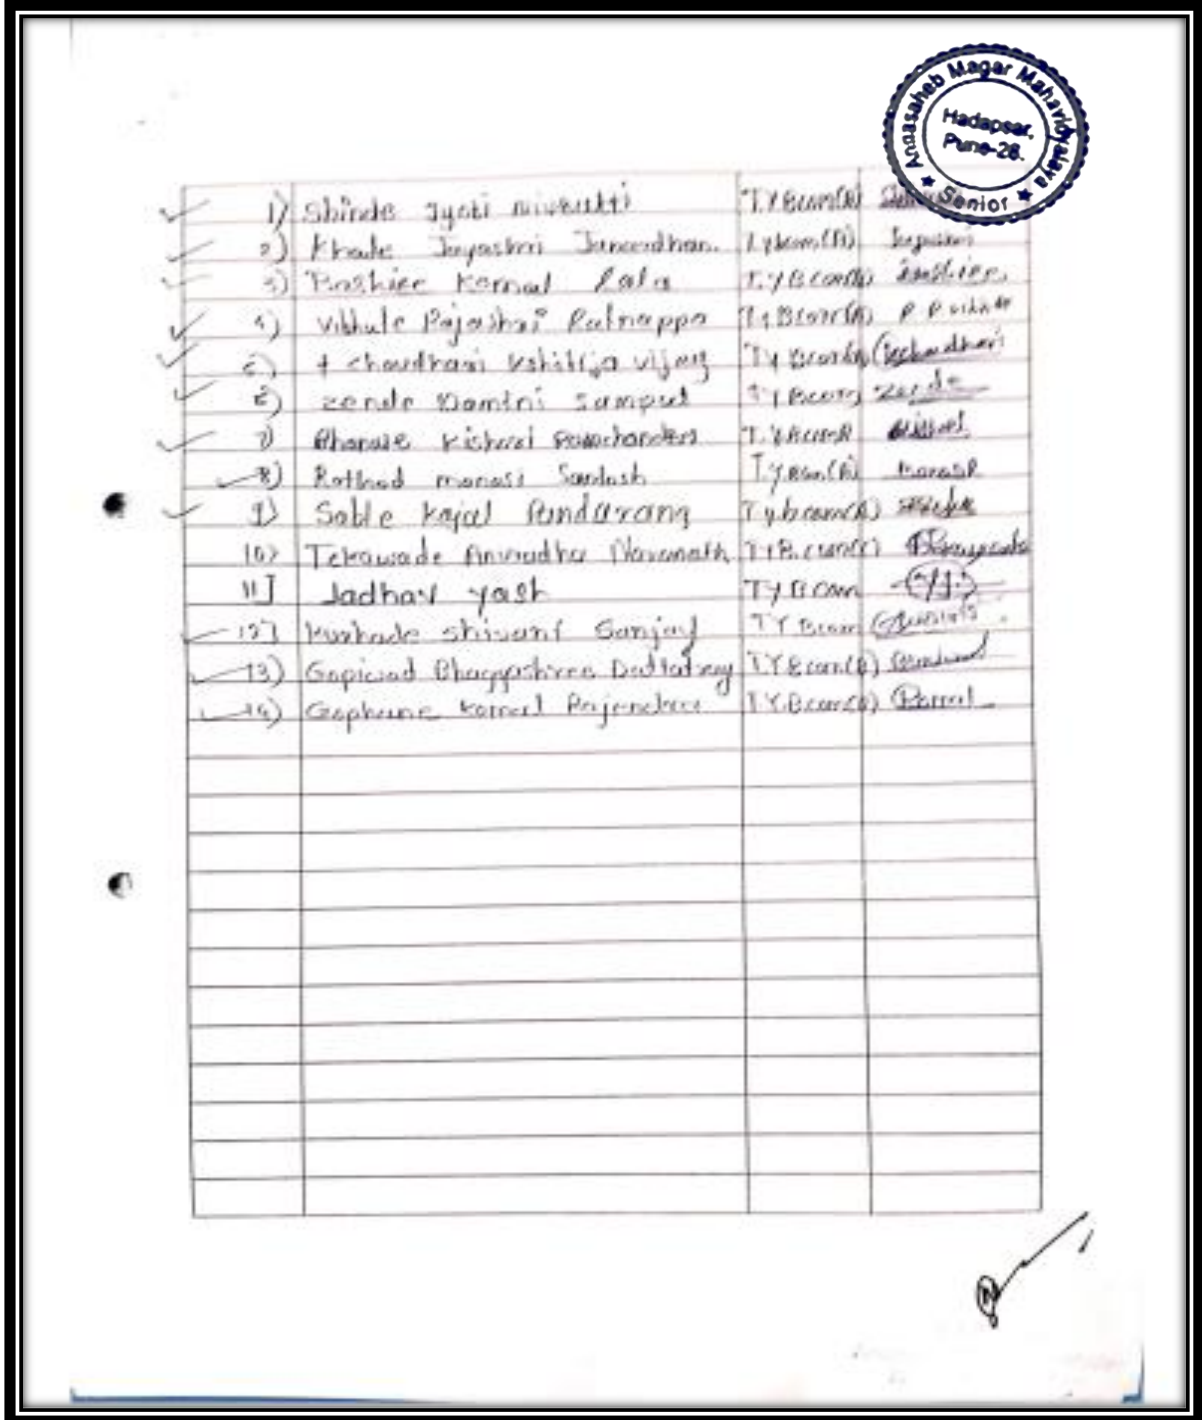 Annasaheb Magar Mahavidyalaya
Hadapsar,
Pune-28.
★ Senior ★
1) Shinde Jyoti Nivrutti T.Y Bcom(A)
2) Khade Jayashri Janardhan. T.y bcom(A)
3) Komal Lala T.Y Bcom(A)
4) Vibhute Rajashri Ratnappa T.Y Bcom(A)
Choudhari Kshitija Vijay T.Y Bcom(A)
6) Zende Damini Sampat T.Y Bcom Zende
7) Kishori Ramchandra T.Y.Bcom
8) Rathod manasi Santosh T.y.Bcom(A) Manasi
9) Sable Kajal Pandurang T.y.bcom(A)
10) Tekawade Anuradha Navanath T.Y.B.com
11] Jadhav yash T.Y B com
12] Kurhade Shivani Sanjay T.Y Bcom
13) Gopiwad Bhagyashree Dattatray T.Y.Bcom(A)
14) Gophane Komal Rajendra T.Y.Bcom(A) Komal